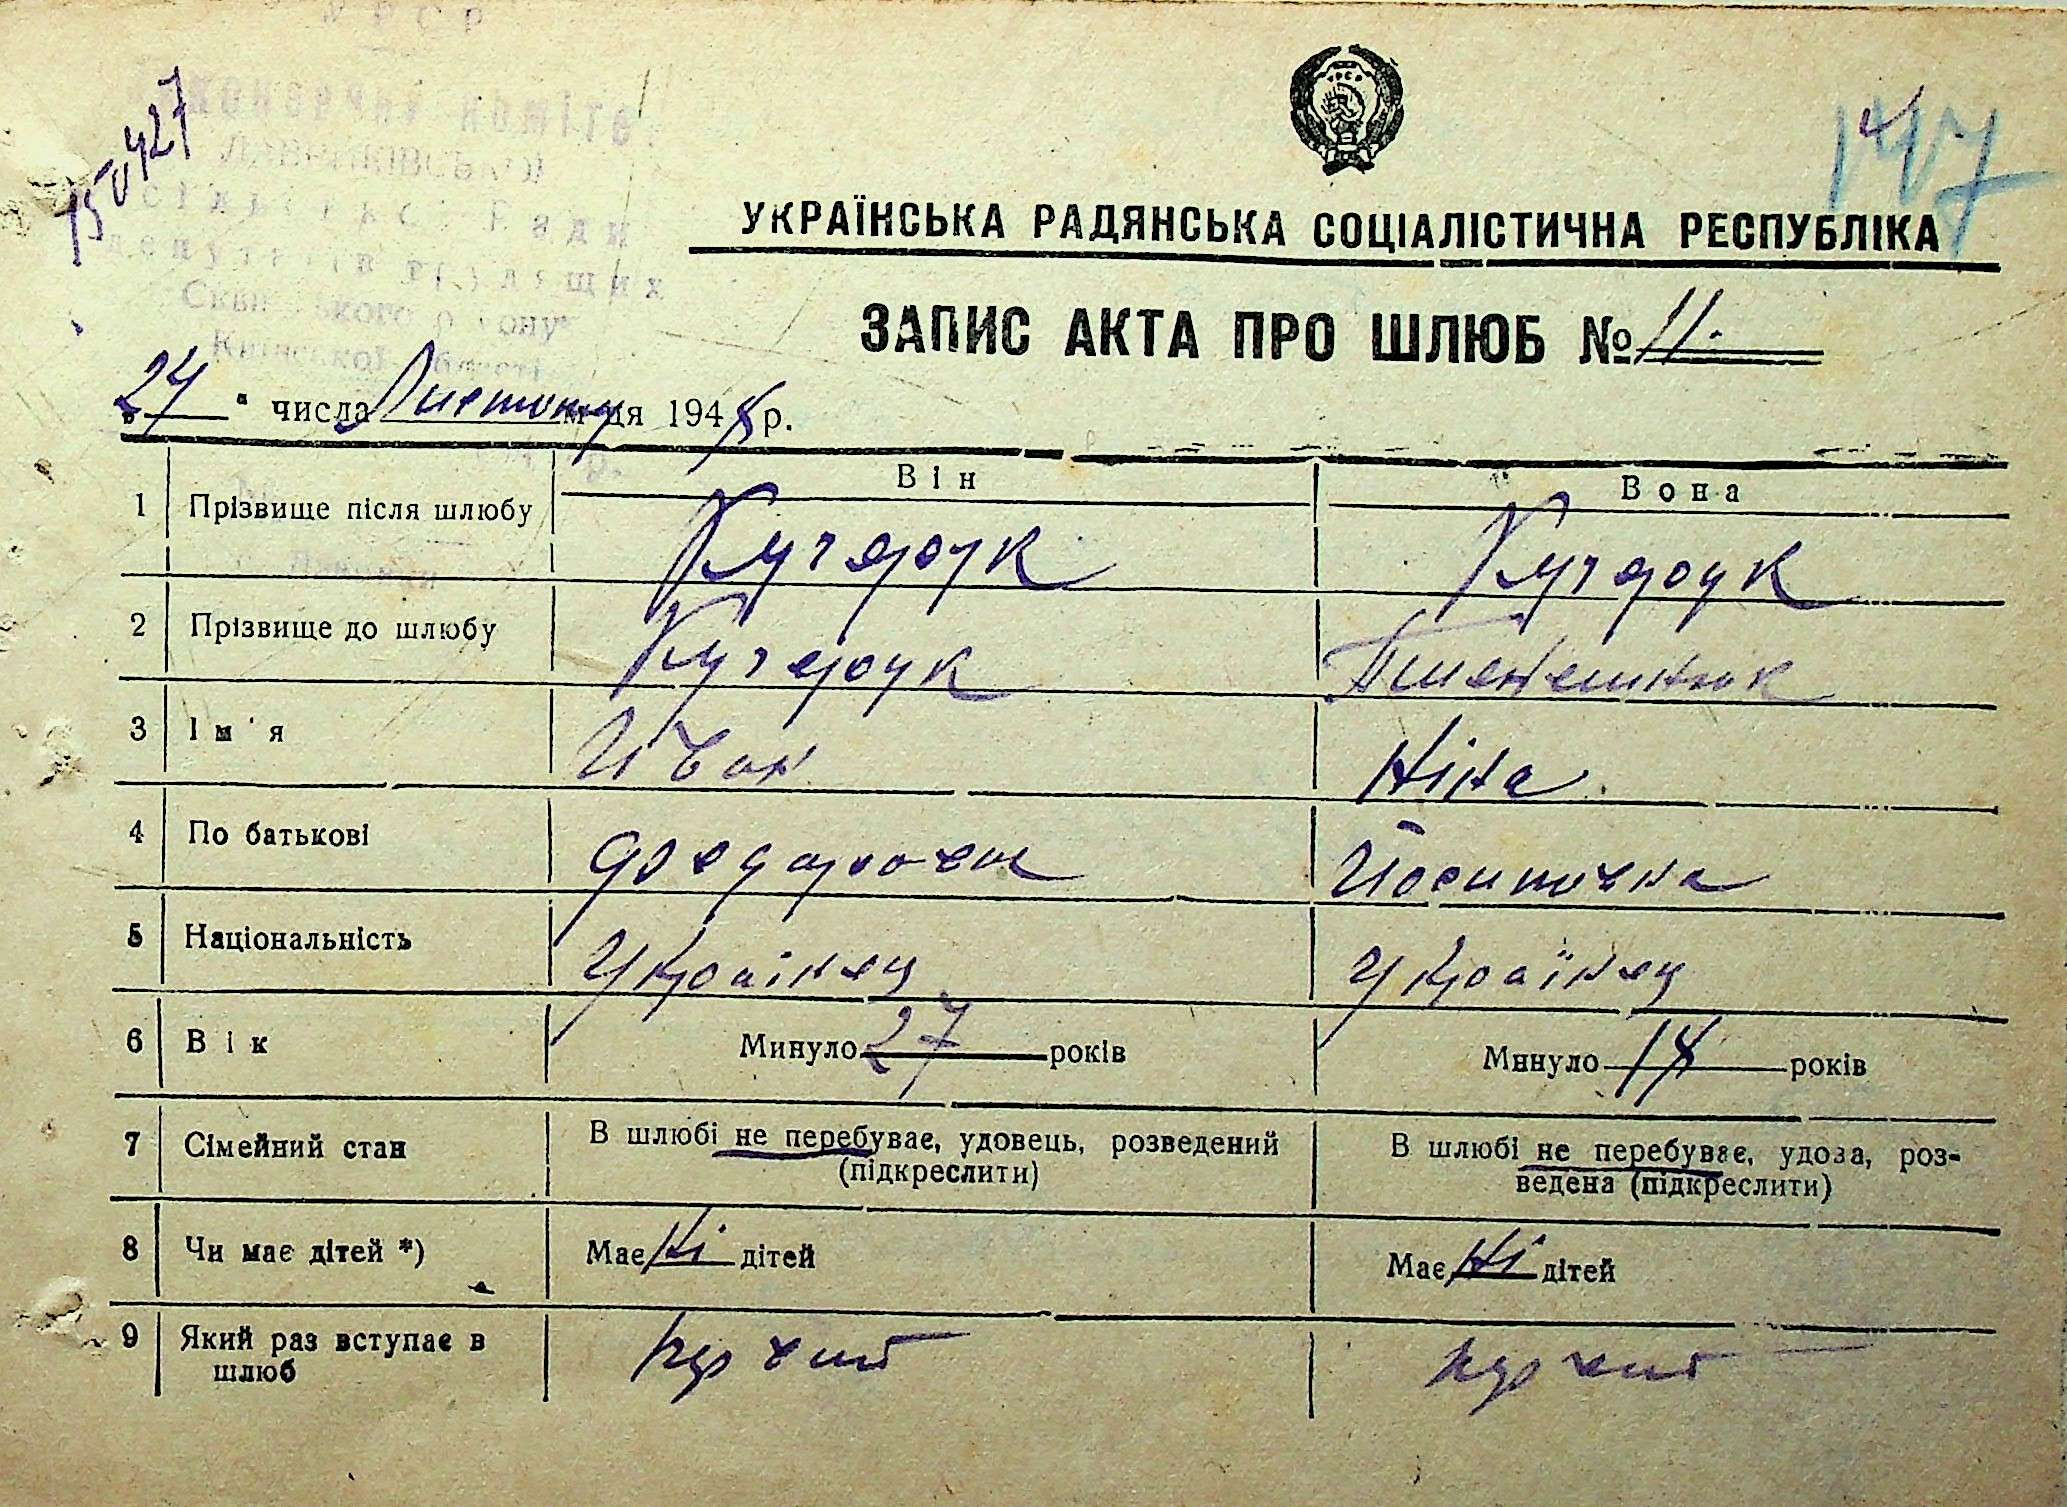 УРСР
Виконавчий коміте
сільської Ради
депутатів трудящих
Сквирського району
Київської області
150427
147
УРСР
УКРАЇНСЬКА РАДЯНСЬКА СОЦІАЛІСТИЧНА РЕСПУБЛІКА
ЗАПИС АКТА ПРО ШЛЮБ № 11.
„24" числа Листопу м-ця 1948 р.
Він Вона
1 Прізвище після шлюбу Кучерук Кучерук
2 Прізвище до шлюбу Кучерук
3 Ім'я Иван Ніна.
4 По батькові Федорович Йосиповна
5 Національність Українец Українец
6 Вік Минуло 27 років Минуло 18 років
7 Сімейний стан В шлюбі не перебуває, удовець, розведений (підкреслити) В шлюбі не перебуває, удова, розведена (підкреслити)
8 Чи має дітей *) Має Ні дітей Має Ні дітей
9 Який раз вступає в шлюб первий первий